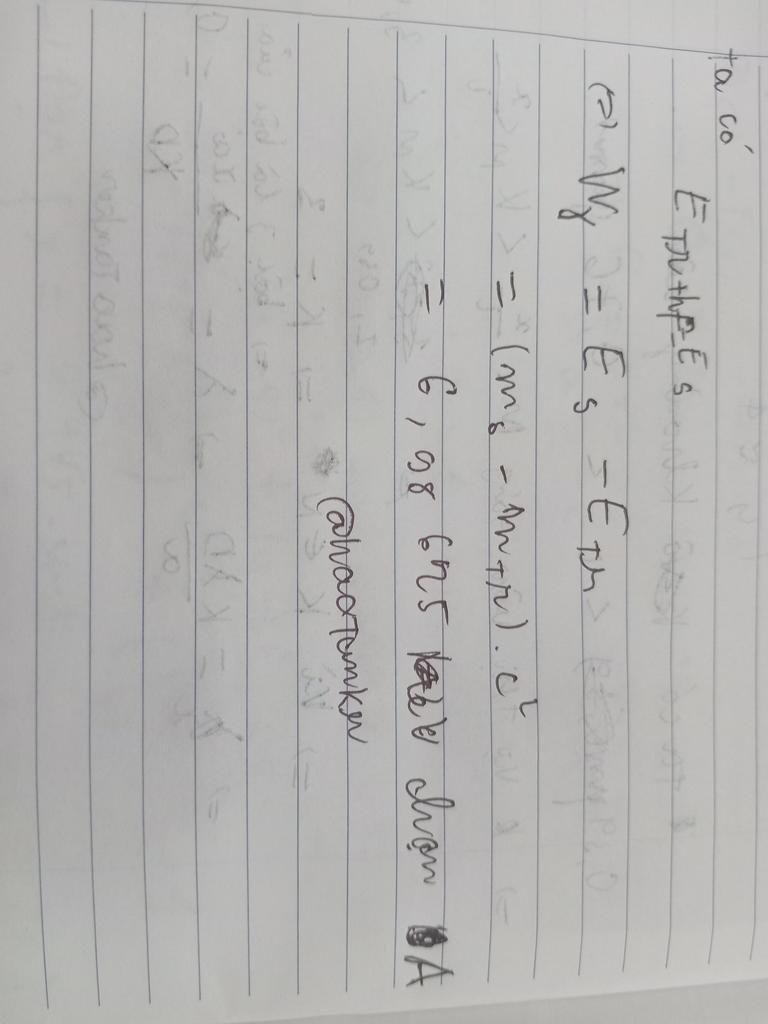 ta có
E_{tr} + hf = E_s
(=) W_γ = E_s - E_{tr}
= (m_s - m_{tr}) . c²
= 6,98 625 keV chọn A
@haotamker